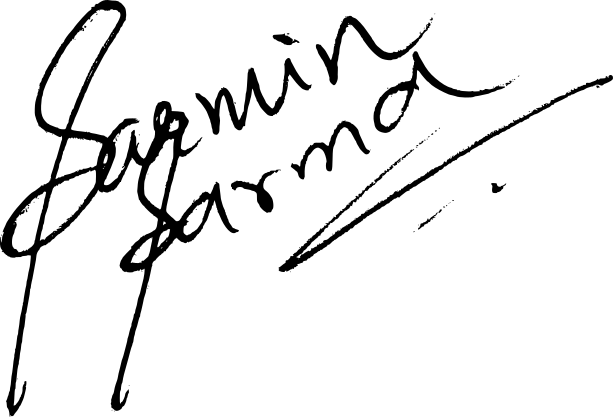 Sarmin
Sarma